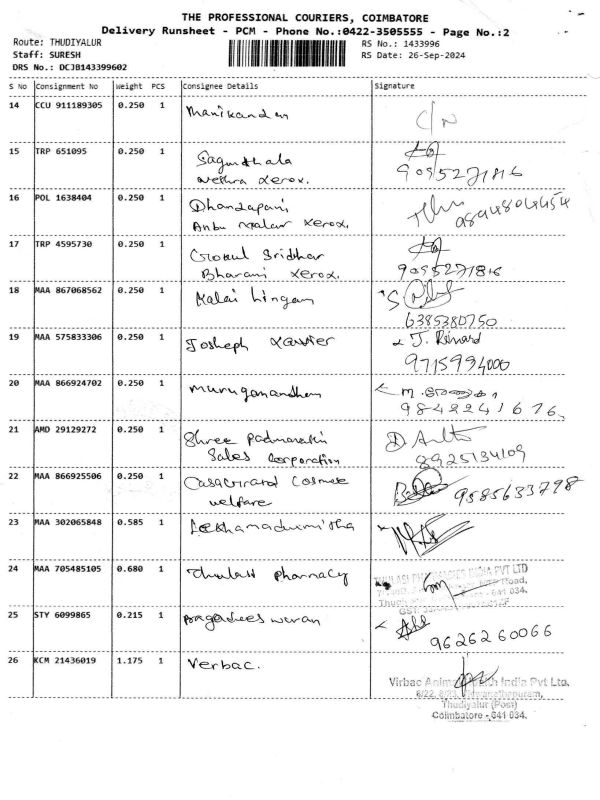 THE PROFESSIONAL COURIERS, COIMBATORE
Delivery Runsheet - PCM - Phone No.:0422-3505555 - Page No.:2
Route: THUDIYALUR RS No.: 1433996
Staff: SURESH RS Date: 26-Sep-2024
DRS No.: DCJB143399602
S No Consignment No Weight PCS Consignee Details Signature
14 CCU 911189305 0.250 1 Manikandan C/N
15 TRP 651095 0.250 1
Xerox. 9095271816
16 POL 1638404 0.250 1 Dhandapani,
Anbu Malar Xerox.
17 TRP 4595730 0.250 1 Gokul Sridhar
Bharani Xerox. 9095271816
18 MAA 867068562 0.250 1 Kalai Lingam
6385380750
19 MAA 575833306 0.250 1 Josheph Xavier
9715994000
20 MAA 866924702 0.250 1 Muruganandham
9842241676
21 AMD 29129272 0.250 1 Shree
Sales Corporation 8925134109
22 MAA 866925506 0.250 1
welfare 9585633798
23 MAA 302065848 0.585 1
24 MAA 705485105 0.680 1 Pharmacy
25 STY 6099865 0.215 1
9626260066
26 KCM 21436019 1.175 1 Verbac.
Virbac India Pvt Ltd.
Thudiyalur (Post)
Coimbatore - 641 034.